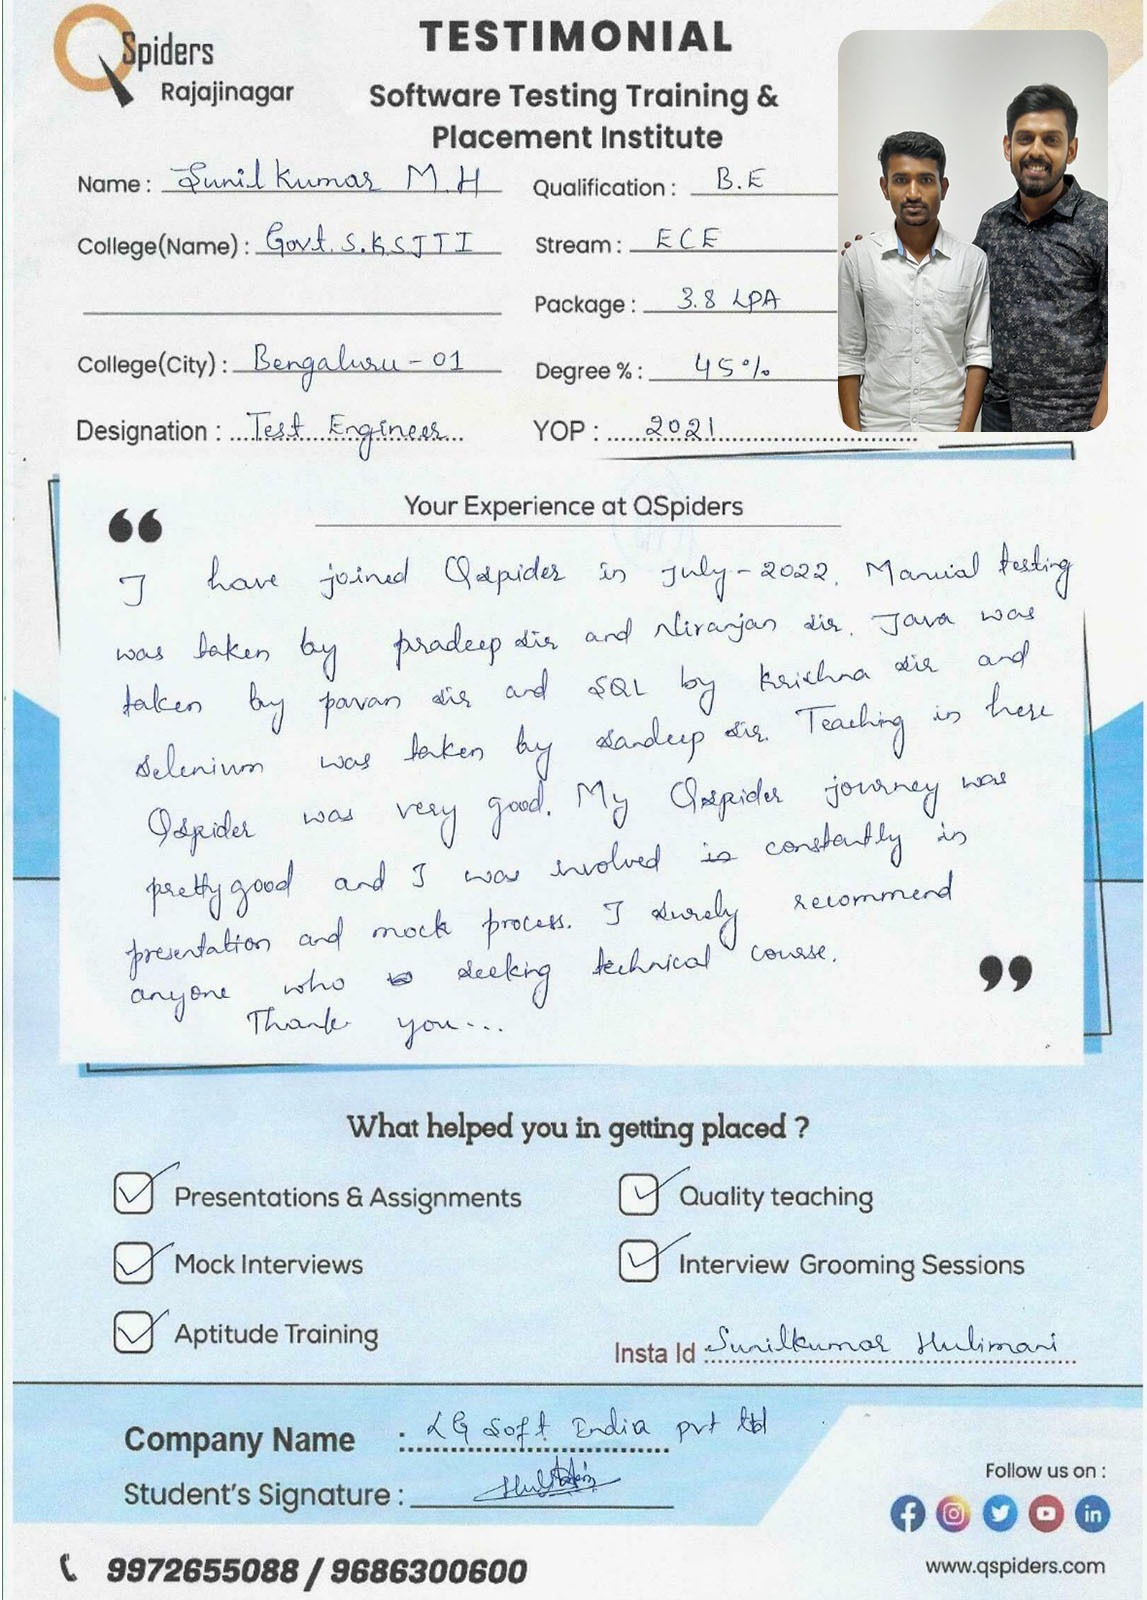 QSpiders
Rajajinagar
TESTIMONIAL
Software Testing Training &
Placement Institute
Name : Sunil kumar M.H
Qualification : B.E
College(Name) : Govt. S.KSJTI
Stream : ECE
Package : 3.8 LPA
College(City) : Bengaluru - 01
Degree % : 45%
Designation : Test Engineer
YOP : 2021
Your Experience at QSpiders
“
I have joined Qspider in July - 2022. Manual testing
was taken by pradeep sir and Niranjan sir. Java was
taken by pavan sir and SQL by krishna sir and
selenium was taken by sandeep sir. Teaching in here
Qspider was very good. My Qspider journey was
pretty good and I was involved in constantly in
presentation and mock process. I surely recommend
anyone who seeking technical course.
Thank you...
”
What helped you in getting placed ?
Presentations & Assignments
Quality teaching
Mock Interviews
Interview Grooming Sessions
Aptitude Training
Insta Id Sunilkumar Hulimani
Company Name : LG Soft India pvt ltd
Student's Signature :
Follow us on :
9972655088 / 9686300600
www.qspiders.com